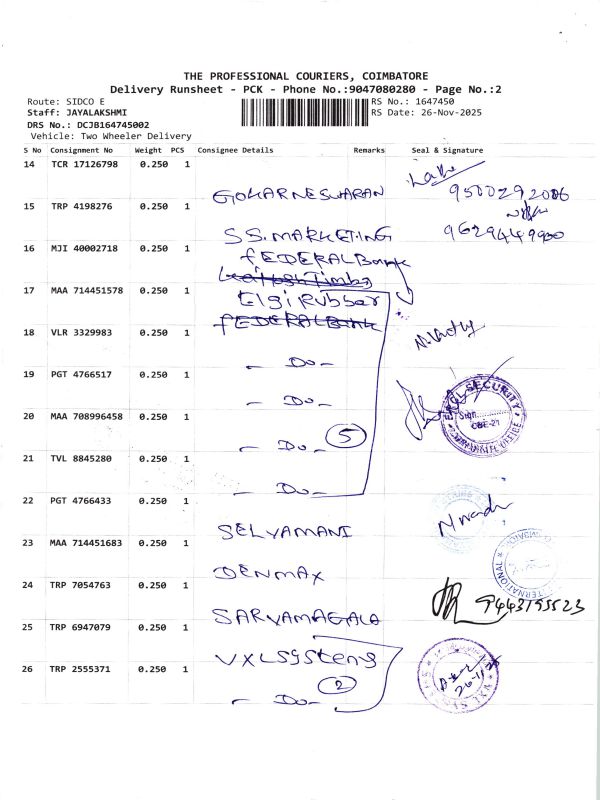 THE PROFESSIONAL COURIERS, COIMBATORE
Delivery Runsheet - PCK - Phone No.:9047080280 - Page No.:2
Route: SIDCO E
RS No.: 1647450
Staff: JAYALAKSHMI
RS Date: 26-Nov-2025
DRS No.: DCJB164745002
Vehicle: Two Wheeler Delivery
S No Consignment No Weight PCS Consignee Details Remarks Seal & Signature
14 TCR 17126798 0.250 1
GOKARNESWARAN 9500292006
15 TRP 4198276 0.250 1
SS.MARKETING 9629449900
16 MJI 40002718 0.250 1
FEDERAL Bank
17 MAA 714451578 0.250 1
Elgi Rubber
FEDERAL Bank
18 VLR 3329983 0.250 1
- Do -
19 PGT 4766517 0.250 1
- Do -
20 MAA 708996458 0.250 1
- Do - 5
21 TVL 8845280 0.250 1
- Do -
22 PGT 4766433 0.250 1
SELVAMANI
23 MAA 714451683 0.250 1
DENMAX
24 TRP 7054763 0.250 1
SARVAMAGALA 9443195523
25 TRP 6947079 0.250 1
VXL Systems
26 TRP 2555371 0.250 1
2
- Do -
SECURITY
CBE-21
INTERNATIONAL